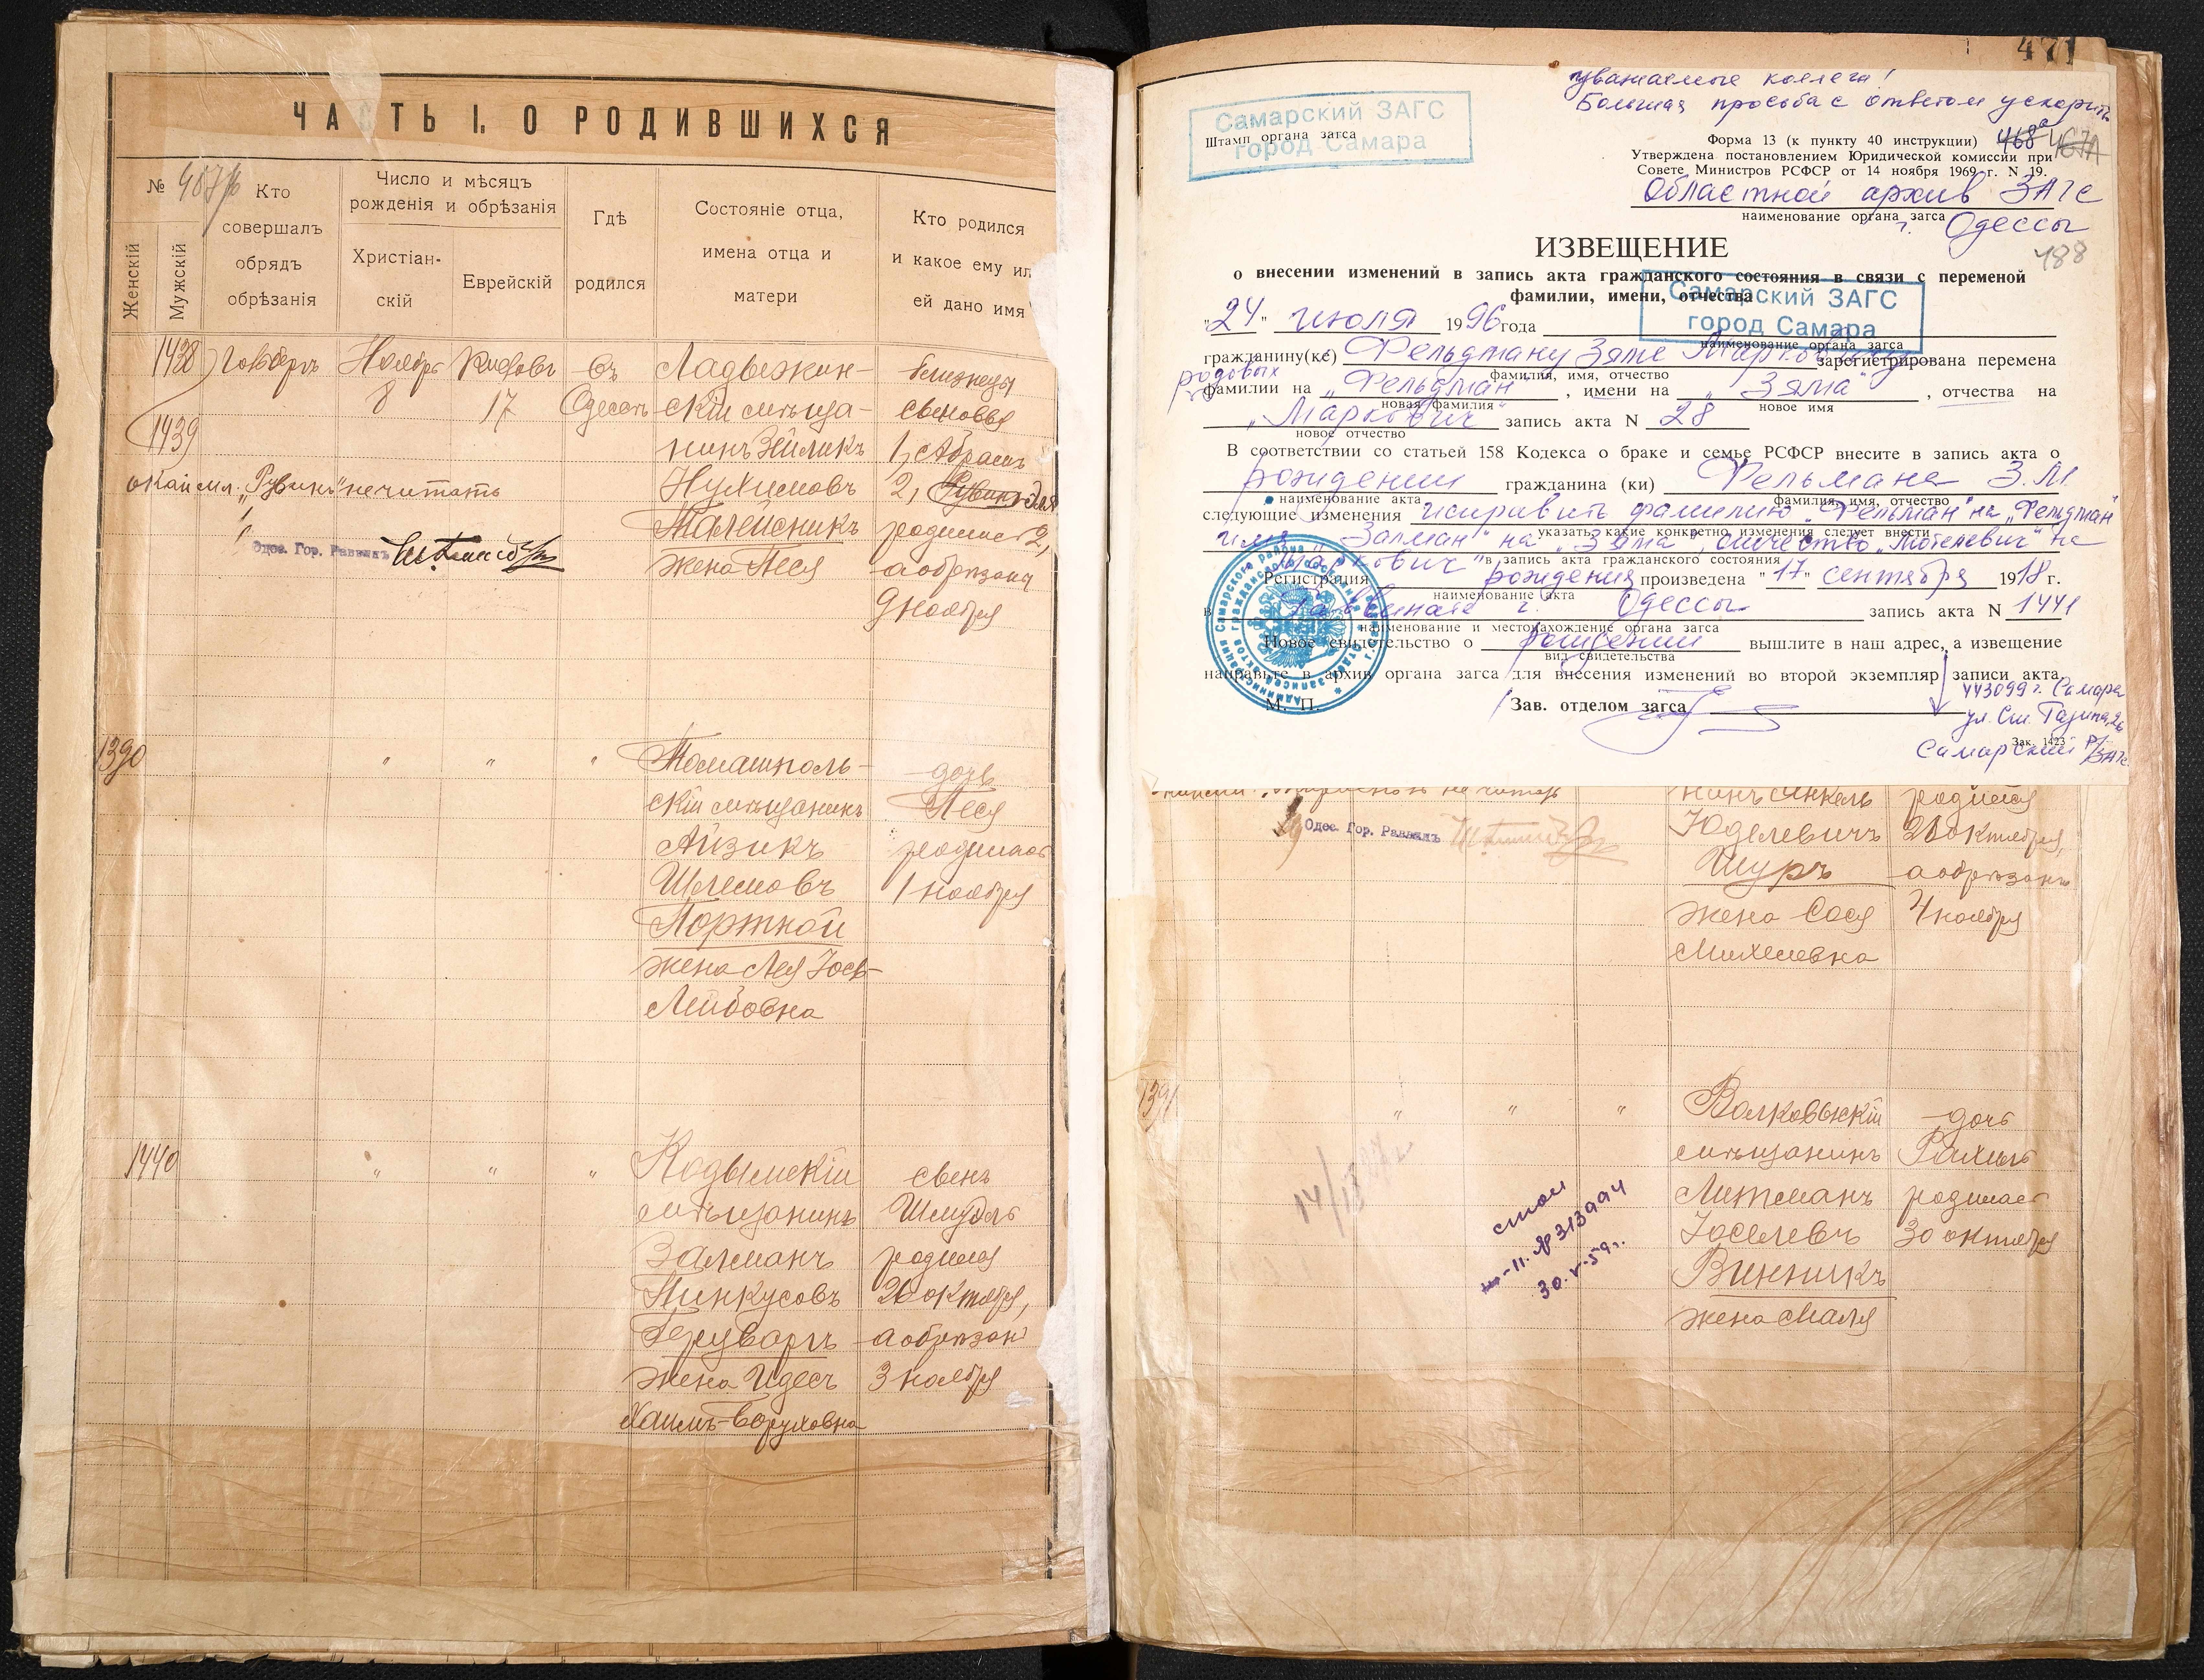 ЧАСТЬ I. О РОДИВШИХСЯ
№
Женскій
Мужскій
Кто
совершалъ
обрядъ
обрѣзанія
Число и мѣсяцъ
рожденія и обрѣзанія
Христіан-
скій
Еврейскій
Гдѣ
родился
Состояніе отца,
имена отца и
матери
Кто родился
и какое ему ил
ей дано имя
1438
Ноябрь
8
17
въ
Одессѣ
1439
Ладыжин-
скій мѣща-
нинъ Зейликъ
Нухимовъ
жена Песя
близнецы
сыновья
1, Абрамъ
2,
родились 2,
а обрѣзаны
9 ноября
"Рувинъ" не читать
Одес. Гор. Раввинъ
1390
" " "
Томашполь-
скій мѣщанинъ
Айзикъ
Шлемовъ
Портной
жена Лея Іось-
Лейбовна
дочь
Песя
родилась
1 ноября
1440
" " "
Кодымскій
мѣщанинъ
Залманъ
Пинкусовъ
жена Идесъ
Хаимъ-Боруховна
сынъ
Шмуль
родился
26 октября,
а обрѣзанъ
3 ноября
471
Уважаемые коллеги!
Большая просьба с ответом ускорить
Самарский ЗАГС
город Самара
Штамп органа загса
Форма 13 (к пункту 40 инструкции)
468 467А
Утверждена постановлением Юридической комиссии при
Совете Министров РСФСР от 14 ноября 1969 г. N 19.
Областной архив ЗАГС
наименование органа загса
г. Одессы
188
ИЗВЕЩЕНИЕ
о внесении изменений в запись акта гражданского состояния в связи с переменой
фамилии, имени, отчества
Самарский ЗАГС
город Самара
"24" июля 1996 года
наименование органа загса
гражданину(ке) Фельдману Зяме Марковичу зарегистрирована перемена
фамилия, имя, отчество
родовых
фамилии на „Фельдман", имени на „Зяма", отчества на
новая фамилия
новое имя
„Маркович" запись акта N 28
новое отчество
В соответствии со статьей 158 Кодекса о браке и семье РСФСР внесите в запись акта о
рождении гражданина (ки) Фельмана З.М.
наименование акта
фамилия, имя, отчество
следующие изменения исправить фамилию „Фельман" на „Фельдман"
указать, какие конкретно изменения следует внести
имя „Залман" на „Зяма", отчество „Мотелевич" на
„Маркович"
в запись акта гражданского состояния
Регистрация рождения произведена "17" сентября 1918 г.
наименование акта
в Раввинате г. Одессы запись акта N 1441
наименование и местонахождение органа загса
Новое свидетельство о рождении вышлите в наш адрес, а извещение
вид свидетельства
направьте в архив органа загса для внесения изменений во второй экземпляр записи акта
М. П.
Зав. отделом загса
443099 г. Самара
Зак. 1423
Самарский р/ЗАГС
Одес. Гор. Раввинъ
нинъ Янкель
Юделевичъ
Шуръ
жена Сося
Михелевна
родился
28 октября,
а обрѣзанъ
4 ноября
1391
" " "
Волковыскій
мѣщанинъ
Литманъ
Іоселевъ
Винникъ
жена Маля
дочь
Рахиль
родилась
30 октября
№ 313994
30.V-59 г.